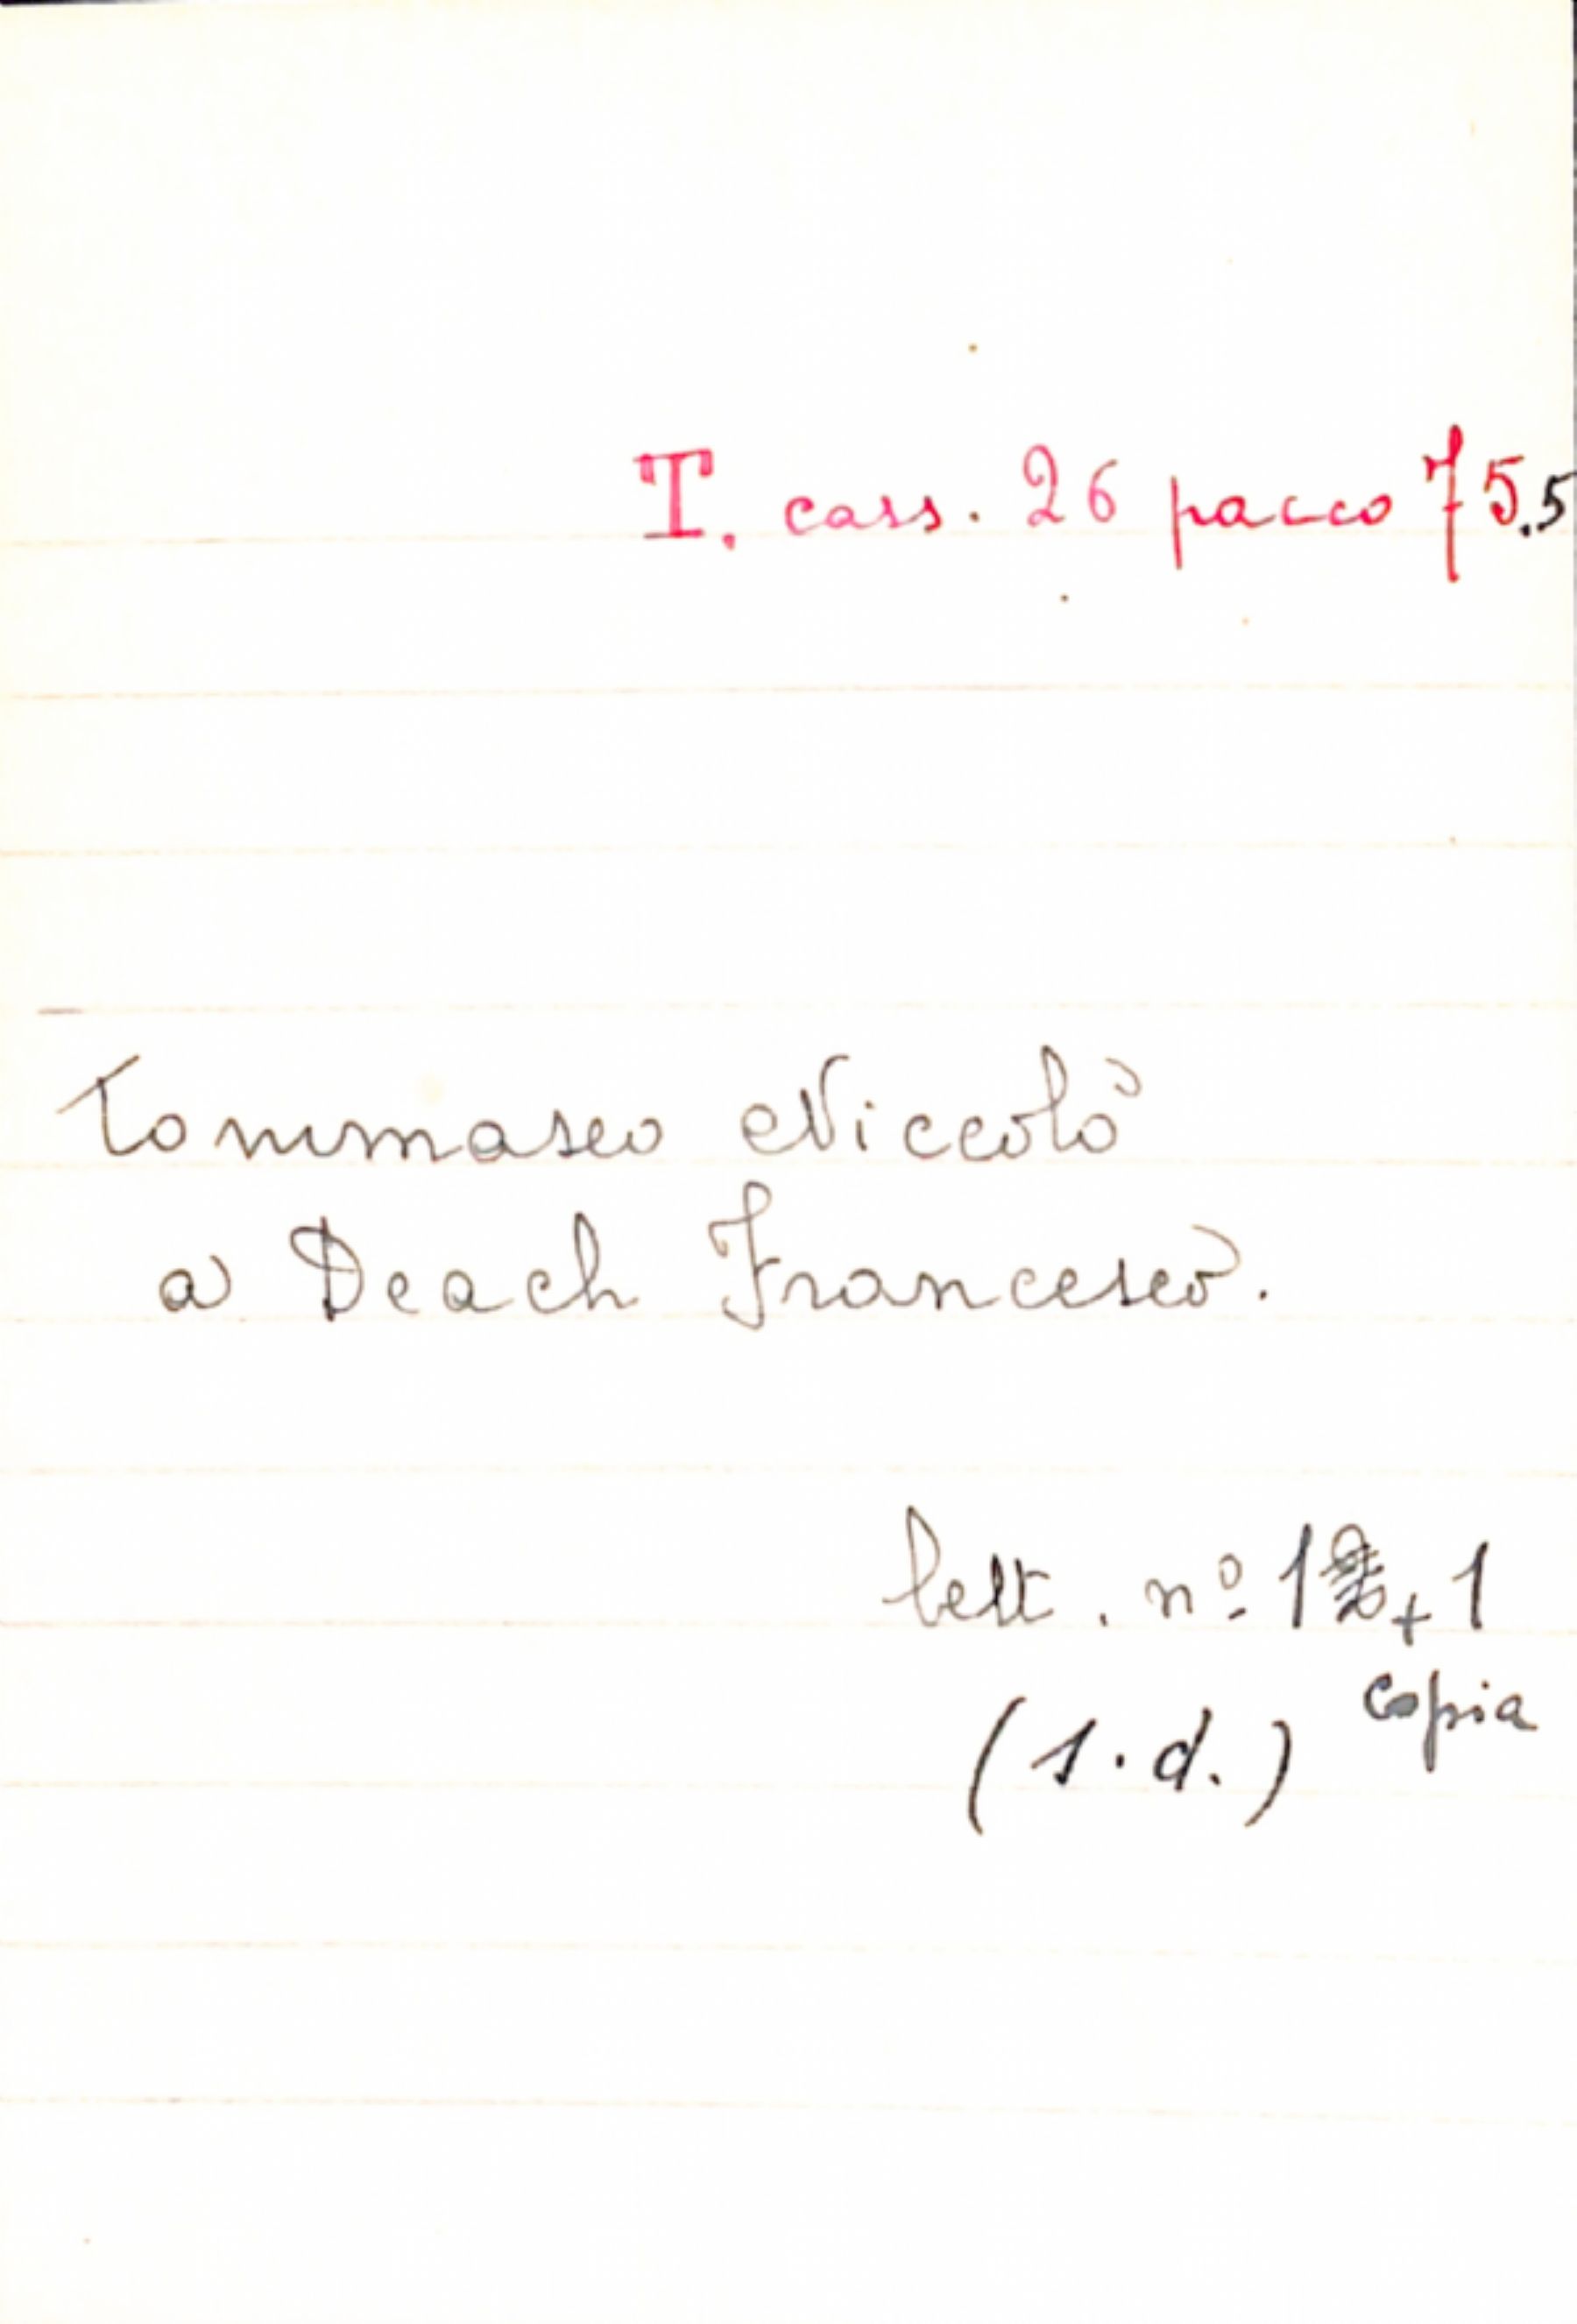 T. cass. 26 pacco 75.5
Tommaseo Niccolò
a Deach Francesco.
lett. nº 1 + 1
copia
(s.d.)